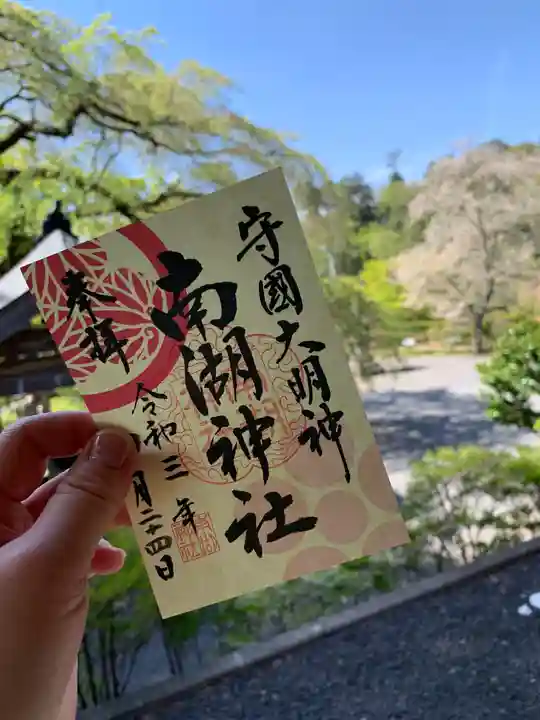 守國大明神
南湖神社
奉拝
令和三年
月二十四日